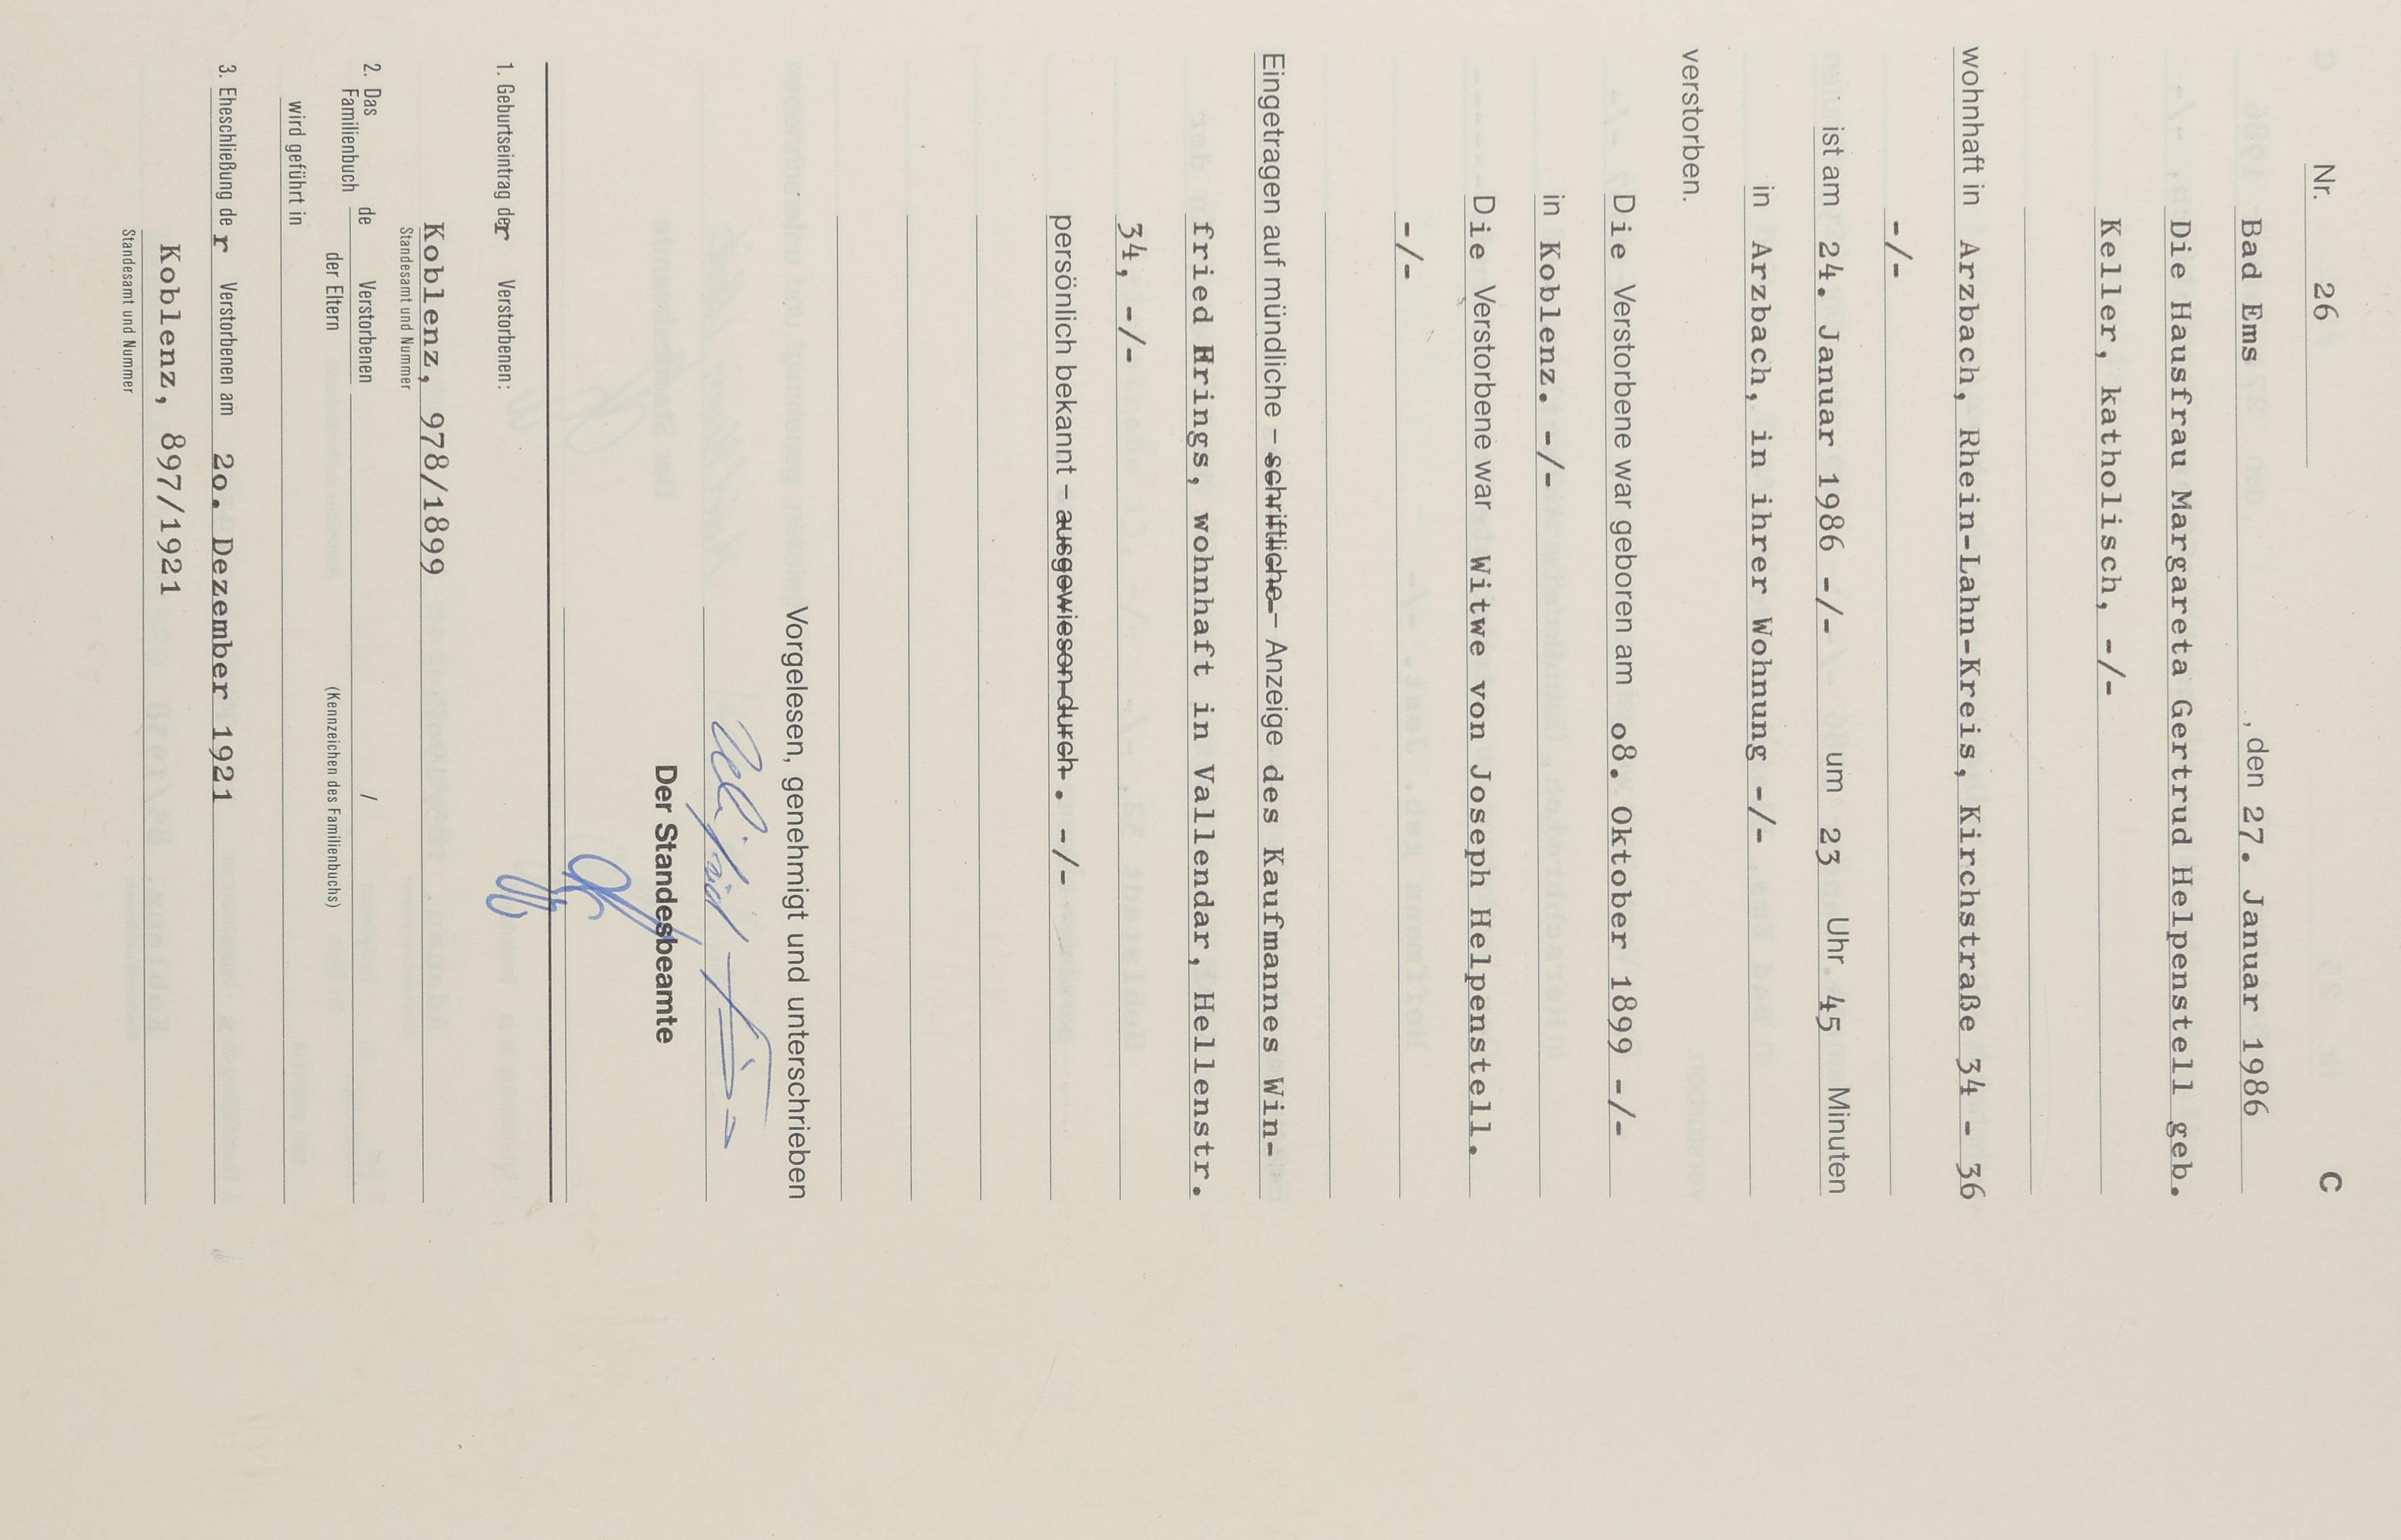 Nr. 26 C
Bad Ems , den 27. Januar 1986
Die Hausfrau Margareta Gertrud Helpenstell geb.
Keller, katholisch, -/-
wohnhaft in Arzbach, Rhein-Lahn-Kreis, Kirchstraße 34 - 36
-/-
ist am 24. Januar 1986 -/- um 23 Uhr 45 Minuten
in Arzbach, in ihrer Wohnung -/-
verstorben.
Die Verstorbene war geboren am o8. Oktober 1899 -/-
in Koblenz. -/-
Die Verstorbene war Witwe von Joseph Helpenstell.
-/-
Eingetragen auf mündliche – schriftliche – Anzeige des Kaufmannes Win-
fried Hrings, wohnhaft in Vallendar, Hellenstr.
34, -/-
persönlich bekannt – ausgewiesen durch . -/-
Vorgelesen, genehmigt und unterschrieben
Der Standesbeamte
1. Geburtseintrag der Verstorbenen:
Koblenz, 978/1899
Standesamt und Nummer
2. Das Familienbuch de Verstorbenen /
der Eltern (Kennzeichen des Familienbuchs)
wird geführt in
3. Eheschließung der Verstorbenen am 2o. Dezember 1921
Koblenz, 897/1921
Standesamt und Nummer